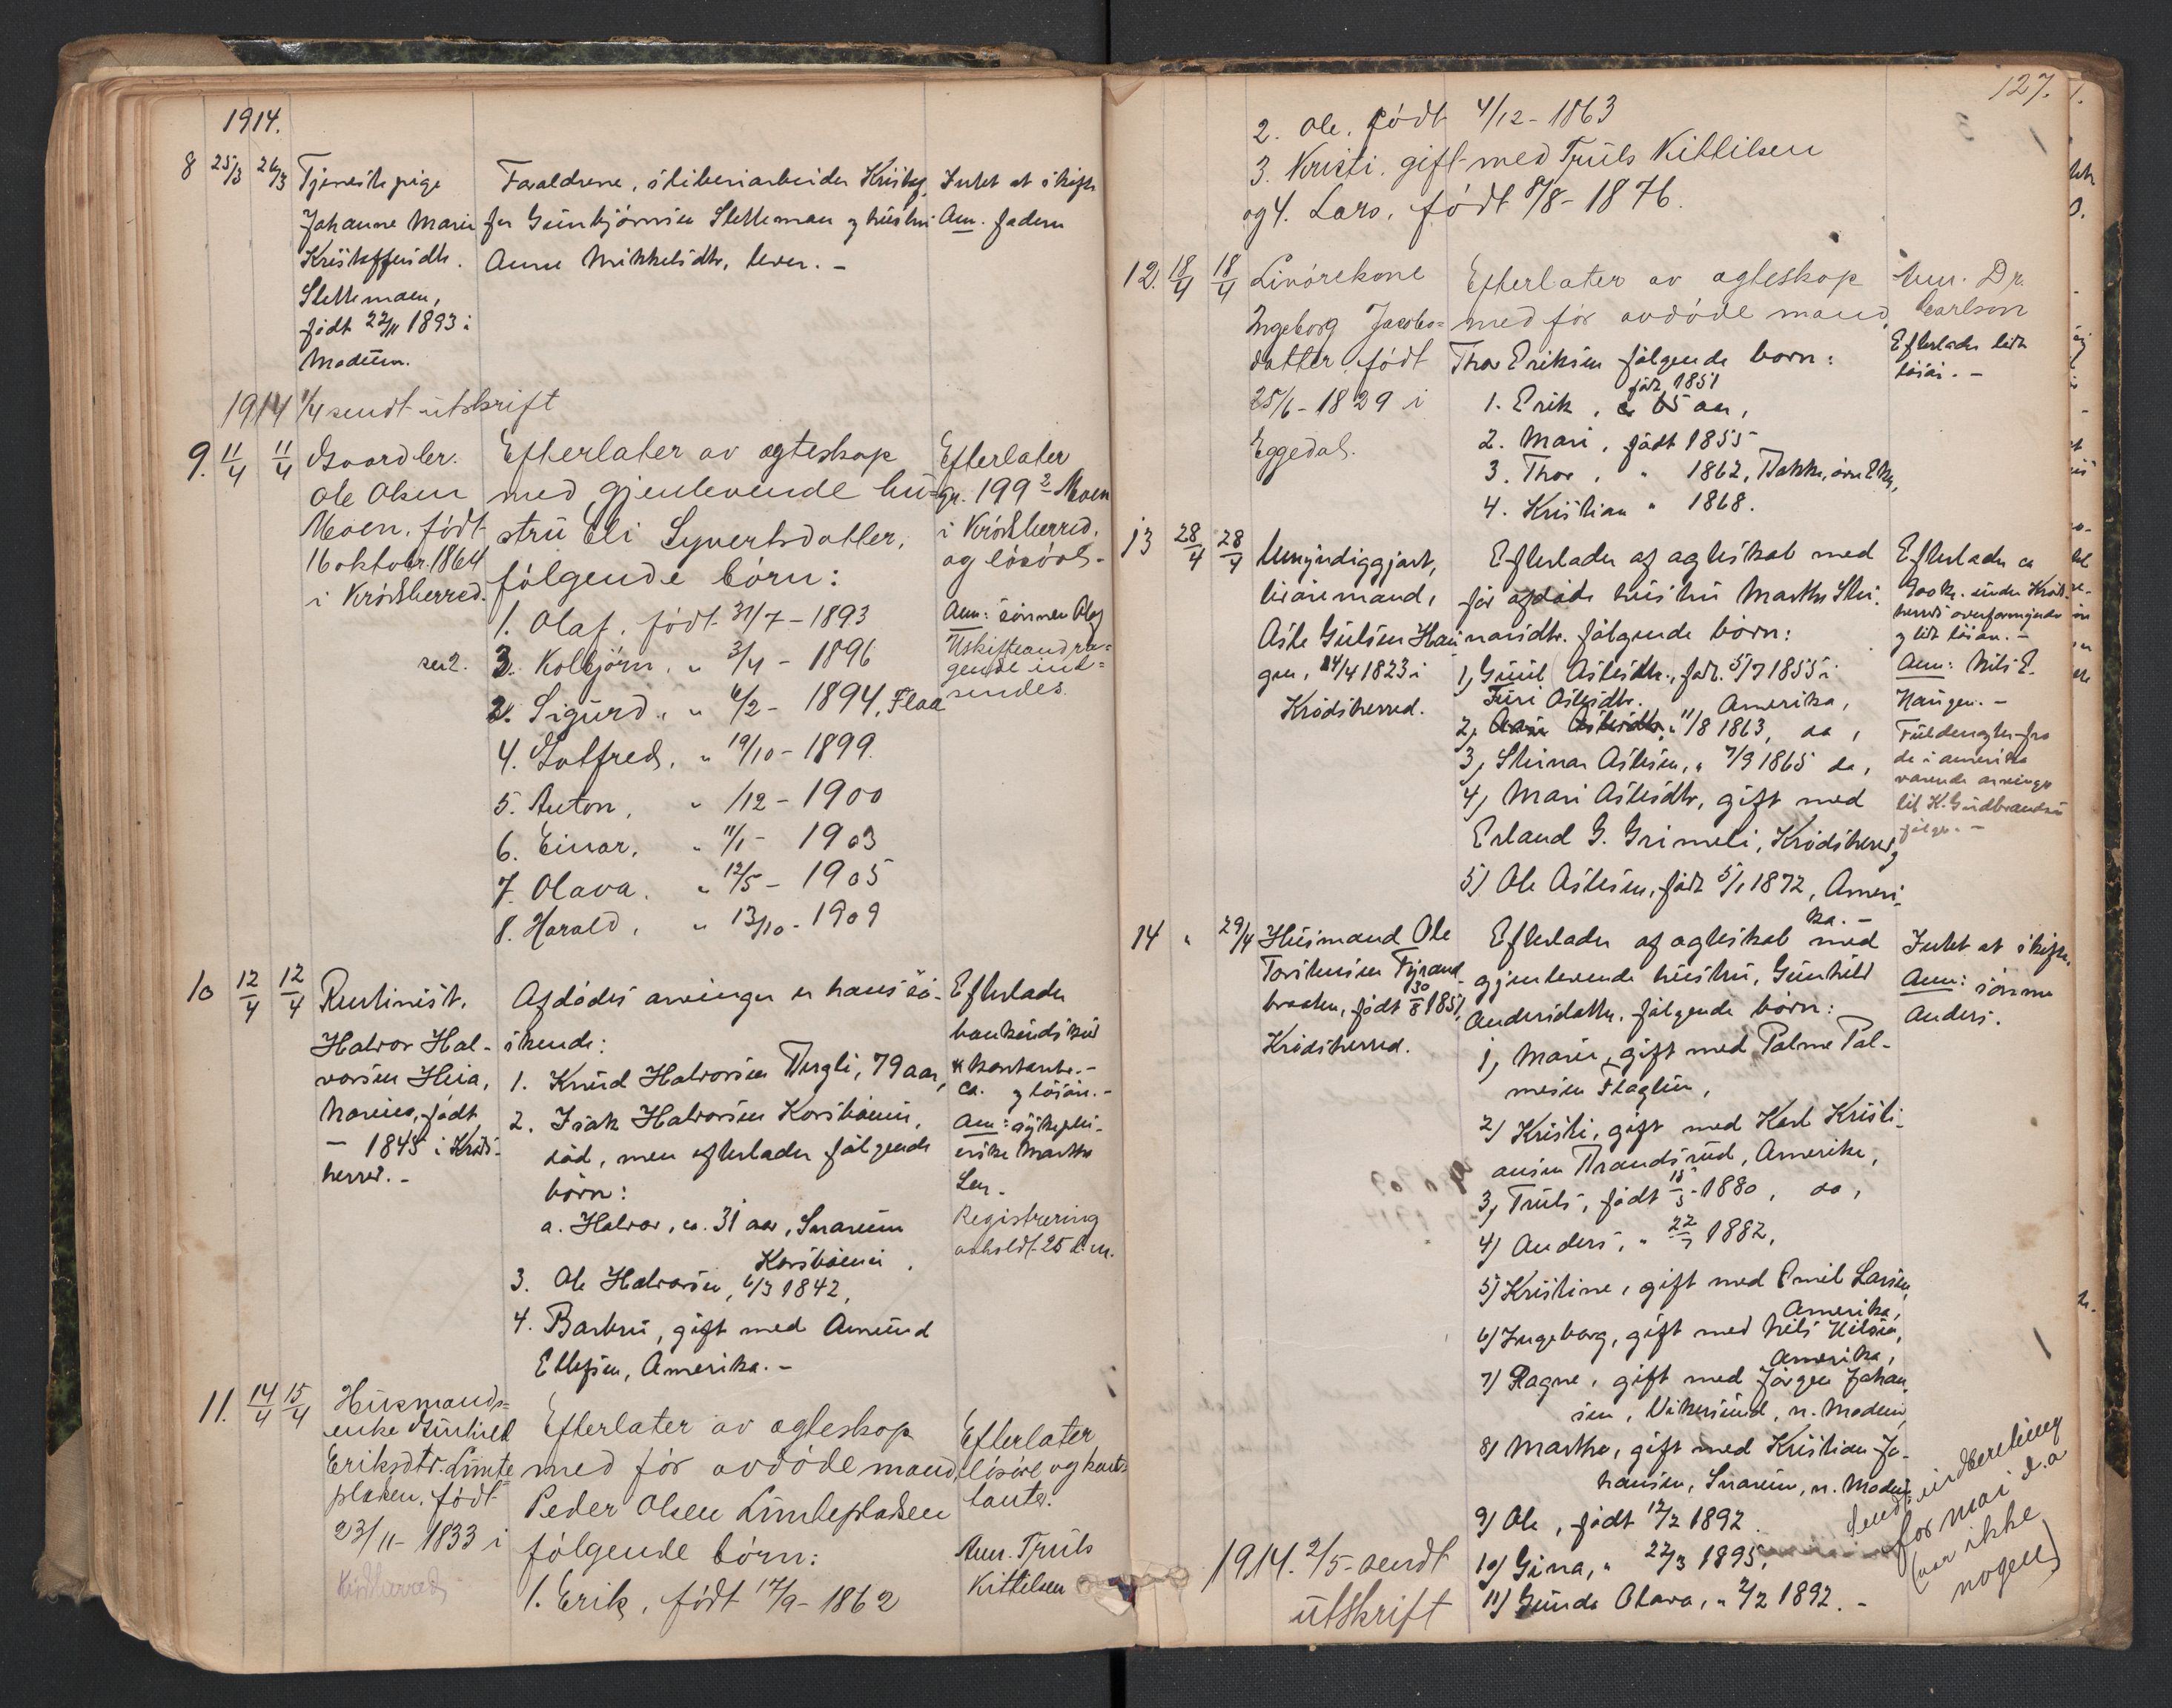 1914.
8 25/3 26/3 Tjenestepige
Johanne Marie
Kristoffersdtr.
Slettemoen,
født 22/11 1893 i
Modum.
Foræældrene, sliberiarbeider Kristof-
fer Gunbjørnsen Slettemoen og hustru
Anne Mikkelsdtr, lever. -
Intet at skifte
Anm. faderen
1914 1/4 sendt utskrift
9. 11/4 11/4 Gaardbr.
Ole Olsen
Moen, født
16 oktobr. 1864
i Krødsherred.
Efterlater av ægteskap
med gjenlevende hu-
stru Eli Syvertsdatter,
følgende børn:
1. Olaf, født 31/7 - 1893
se 2. 3. Kolbjørn, " 3/4 - 1896
2. Sigurd, " 6/2 - 1894, Flaa
4. Gotfred, " 19/10 - 1899.
5. Anton, " /12 - 1900
6. Einar, " 11/1 - 1903
7. Olava. " 12/5 - 1905
8. Harald, " 13/10 - 1909
Efterlater
gr. 199 2 Moen
i Krødsherred,
og løsøre.
Anm: sønnen Olaf
Uskifteandra-
gende ind-
sendes.
10 12/4 12/4 Rentenist,
Halvor Hal-
vorsen Heia,
Noreies, født
— 1845 i Krøds-
herred. -
Afdødes arvinger er hans sø-
skende:
1. Knud Halvorsen Bergli, 79 aar,
2. Isak Halvorsen Korsbøen,
død, men efterlader følgende
børn:
a. Halvor, ca. 31 aar, Snarum
Korsbøen,
3. Ole Halvorsen, 6/3 1842,
4. Barbru, gift med Amund
Ellefsen, Amerika. -
Efterlader
bankindskud
kontante. -
ca. og løsøre. -
Anm: sykeplei-
erske Martha
Len.
Registrering
avholdt 25 d. m.
11. 14/4 15/4 Husmands-
enke Gunhild
Eriksdtr. Linte-
plassen, født
23/11 - 1833 i
Krødsherred
Efterlater av ægteskap
med før avdøde mand,
Peder Olsen Linteplassen
følgende børn:
1. Erik, født 17/9 - 1862
Efterlater
løsøre og kon-
tante.
Anm. Truls
Kittilsen
127.
2. Ole, født 4/12 - 1863
3. Kristi, gift med Truls Kittilsen
og 4. Lars, født 8/8 - 1876.
12. 18/4 18/4 Livørekone
Ingeborg Jacobs-
datter, født
25/6 - 1829 i
Eggedal.
Efterlater av ægteskap
med før avdøde mand,
Thor Eriksen følgende barn:
født 1851
1. Erik, 65 aar,
2. Mari, født 1855
3. Thor, " 1862, Bakke, øvre Eker,
4. Kristian " 1868.
Anm. Dr.
Carlson
Efterlader lidt
løsøre. -
13 28/4 28/4 Umyndiggjort,
livøremand,
Asle Gulsen Hau-
gen, 24/4 1823 i
Krødsherred.
Efterlader af ægteskab med
før afdøde hustru Martha Stei-
narsdtr. følgende børn:
1) Guul Aslesdtr., født 5/7 1855 i
Amerika,
Turi Aslesdtr.
2) " 11/8 1863, do,
3) Steinar Aslesen, " 7/9 1865 do,
4) Mari Aslesdtr, gift med
Erland G. Grimeli, Krødsherred,
5) Ole Aslesen, født 5/1 1872, Ameri-
ka. -
Efterlader ca
900 kr. under Krøds-
herreds overformynderi
og lidt løsøre. -
Anm: Nils E.
Haugen. -
Fuldmagter fra
de i amerika
værende arvinger
til K. Gudbrandsen
følger. -
14 " 29/4 Husmand Ole
Torstensen Fyrand-
braaten, født 30/8 1851,
Krødsherred.
Efterlader af ægteskab med
gjenlevende hustru, Gunhild
Andersdatter, følgende børn:
1) Marie, gift med Palme Pal-
mesen Flaglien,
2) Kristi, gift med Karl Kristi-
ansen Brandsrud, Amerika,
3) Truls, født 15/5 1880, do,
4) Anders, " 22/7 1882,
5) Kristine, gift med Emil Larsen,
Amerika,
6) Ingeborg, gift med Nils Nilsen,
Amerika,
7) Ragne, gift med Jørgen Johan-
sen, Vikersund, n. Modum,
8) Martha, gift med Kristian Jo-
hansen, Snarum, n. Modum,
9) Ole, født 12/2 1892.
10) Gina, " 22/3 1895,
11) Gunda Olava, " 2/2 1892. -
Intet at skifte.
Anm: sønnen
Anders.
1914. 2/5 sendt
utskrift
Sendt indberetning
for mai d.a
(var ikke
nogen)